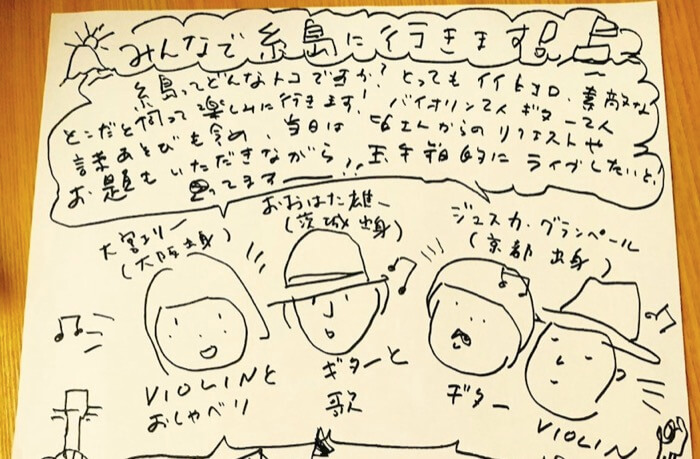 みんなで糸島に行きます!!
糸島ってどんなトコですか？とってもイイトコロ、素敵な
とこだと伺って楽しみに行きます！バイオリン2人ギター2人
言葉あそびも含め、当日は皆さんからのリクエストや
お題もいただきながら、玉手箱的にライブしたいと
思ってます!!
大宮エリー
(大阪出身)
おおはた雄一
(茨城出身)
ジェスカ・グランペール
(京都出身)
VIOLINと
おしゃべり
ギターと
歌
ギター
VIOLIN